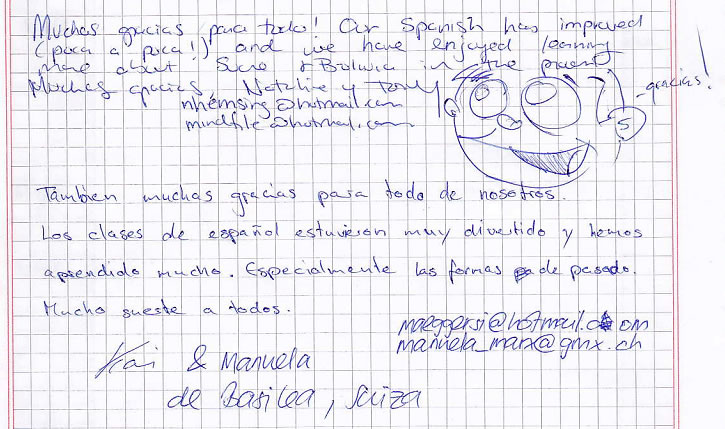 Muchas gracias para todo! Our Spanish has improved
(poca a poca!) and we have enjoyed learning
more about Sucre & Bolivia in the process
Muchas gracias, Natalie y Tony
nhemsing@hotmail.com
mindfile@hotmail.com
gracias!
Tambien muchas gracias para todo de nosotros.
Los clases de español estuvieron muy divertido y hemos
aprendido mucho. Especialmente las formas de pasado.
Mucho sueste a todos.
maeggersi@hotmail.com
manuela_marx@gmx.ch
Kai & Manuela
de Basilea, Suiza